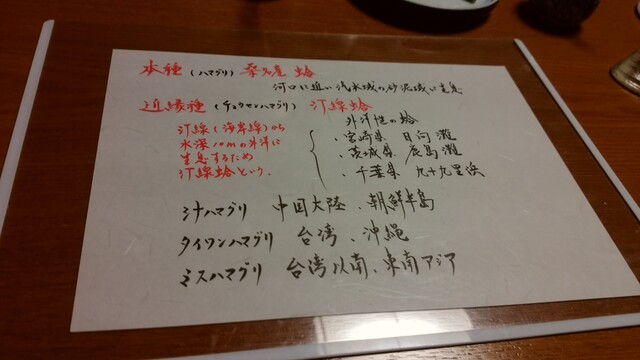 本種(ハマグリ) 桑名産 蛤
河口に近い汽水域の砂泥域に生息
近縁種(チョウセンハマグリ) 汀線蛤
汀線(海岸線)から
水深10mの外洋に
生息するため
汀線蛤という。
外洋性の蛤
・宮崎県 日向灘
・茨城県 鹿島灘
・千葉県 九十九里浜
シナハマグリ 中国大陸、朝鮮半島
タイワンハマグリ 台湾、沖縄
ミスハマグリ 台湾以南、東南アジア